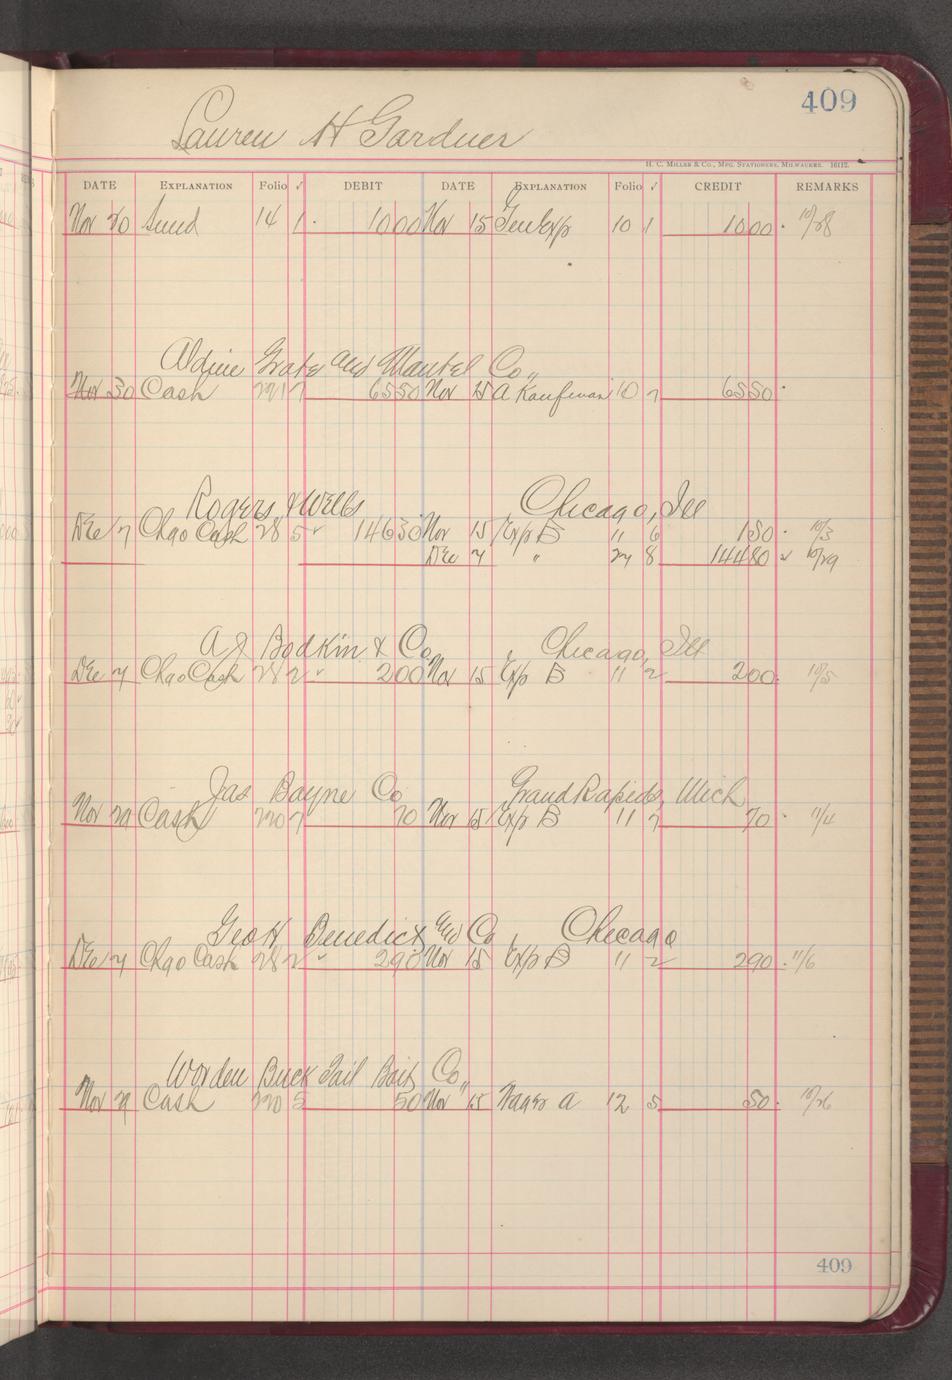 409
Lauren H Gardner
H. C. Miller & Co., Mfg. Stationers, Milwaukee. 16112.
DATE EXPLANATION Folio ✓ DEBIT DATE EXPLANATION Folio ✓ CREDIT REMARKS
Nov 20 Sund 14 1 1000 Nov 15 Gen Exp 10 1 1000 10/28
Aldine Grate and Mantel Co,,
Nov 30 Cash 221 7 6550 Nov 15 A Kaufman 10 7 6550
Rogers & Wells Chicago, Ill
Dec 7 Chgo Cash 28 5 ✓ 14630 Nov 15 Exp B 11 6 150 10/3
Dec 7 " 27 8 14480 ✓ 10/29
A J Bodkin & Co, Chicago, Ill
Dec 7 Chgo Cash 28 2 ✓ 200 Nov 15 Exp B 11 2 200 10/5
Jas Bayne Co Grand Rapids, Mich
Nov 29 Cash 220 7 70 Nov 15 Exp B 11 7 70 11/4
Geo H Benedict and Co Chicago
Dec 7 Chgo Cash 28 2 ✓ 290 Nov 15 Exp B 11 2 290 11/6
Worden Buck Tail Bait Co,,
Nov 29 Cash 220 5 50 Nov 15 Wages A 12 5 50 10/26
409